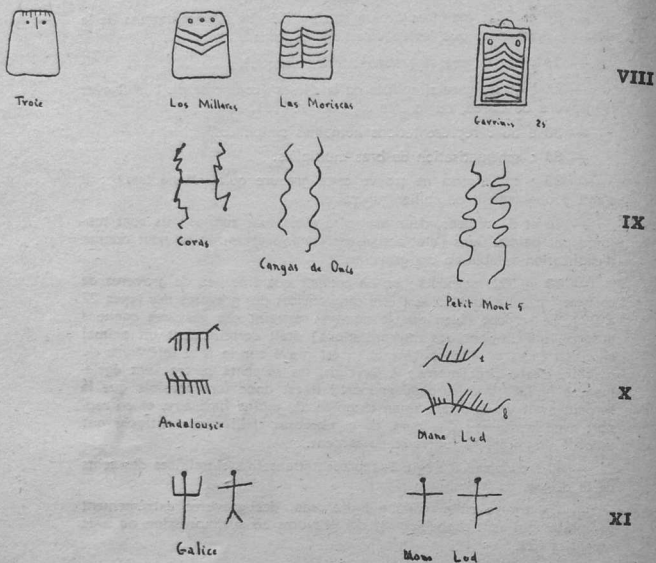 VIII
Troie
Los Millares
Las Moriscas
Gavrinis 25
IX
Coras
Cangas de Onis
Petit Mont 5
X
1
8
Andalousie
Mane Lud
XI
Galice
Mane Lud